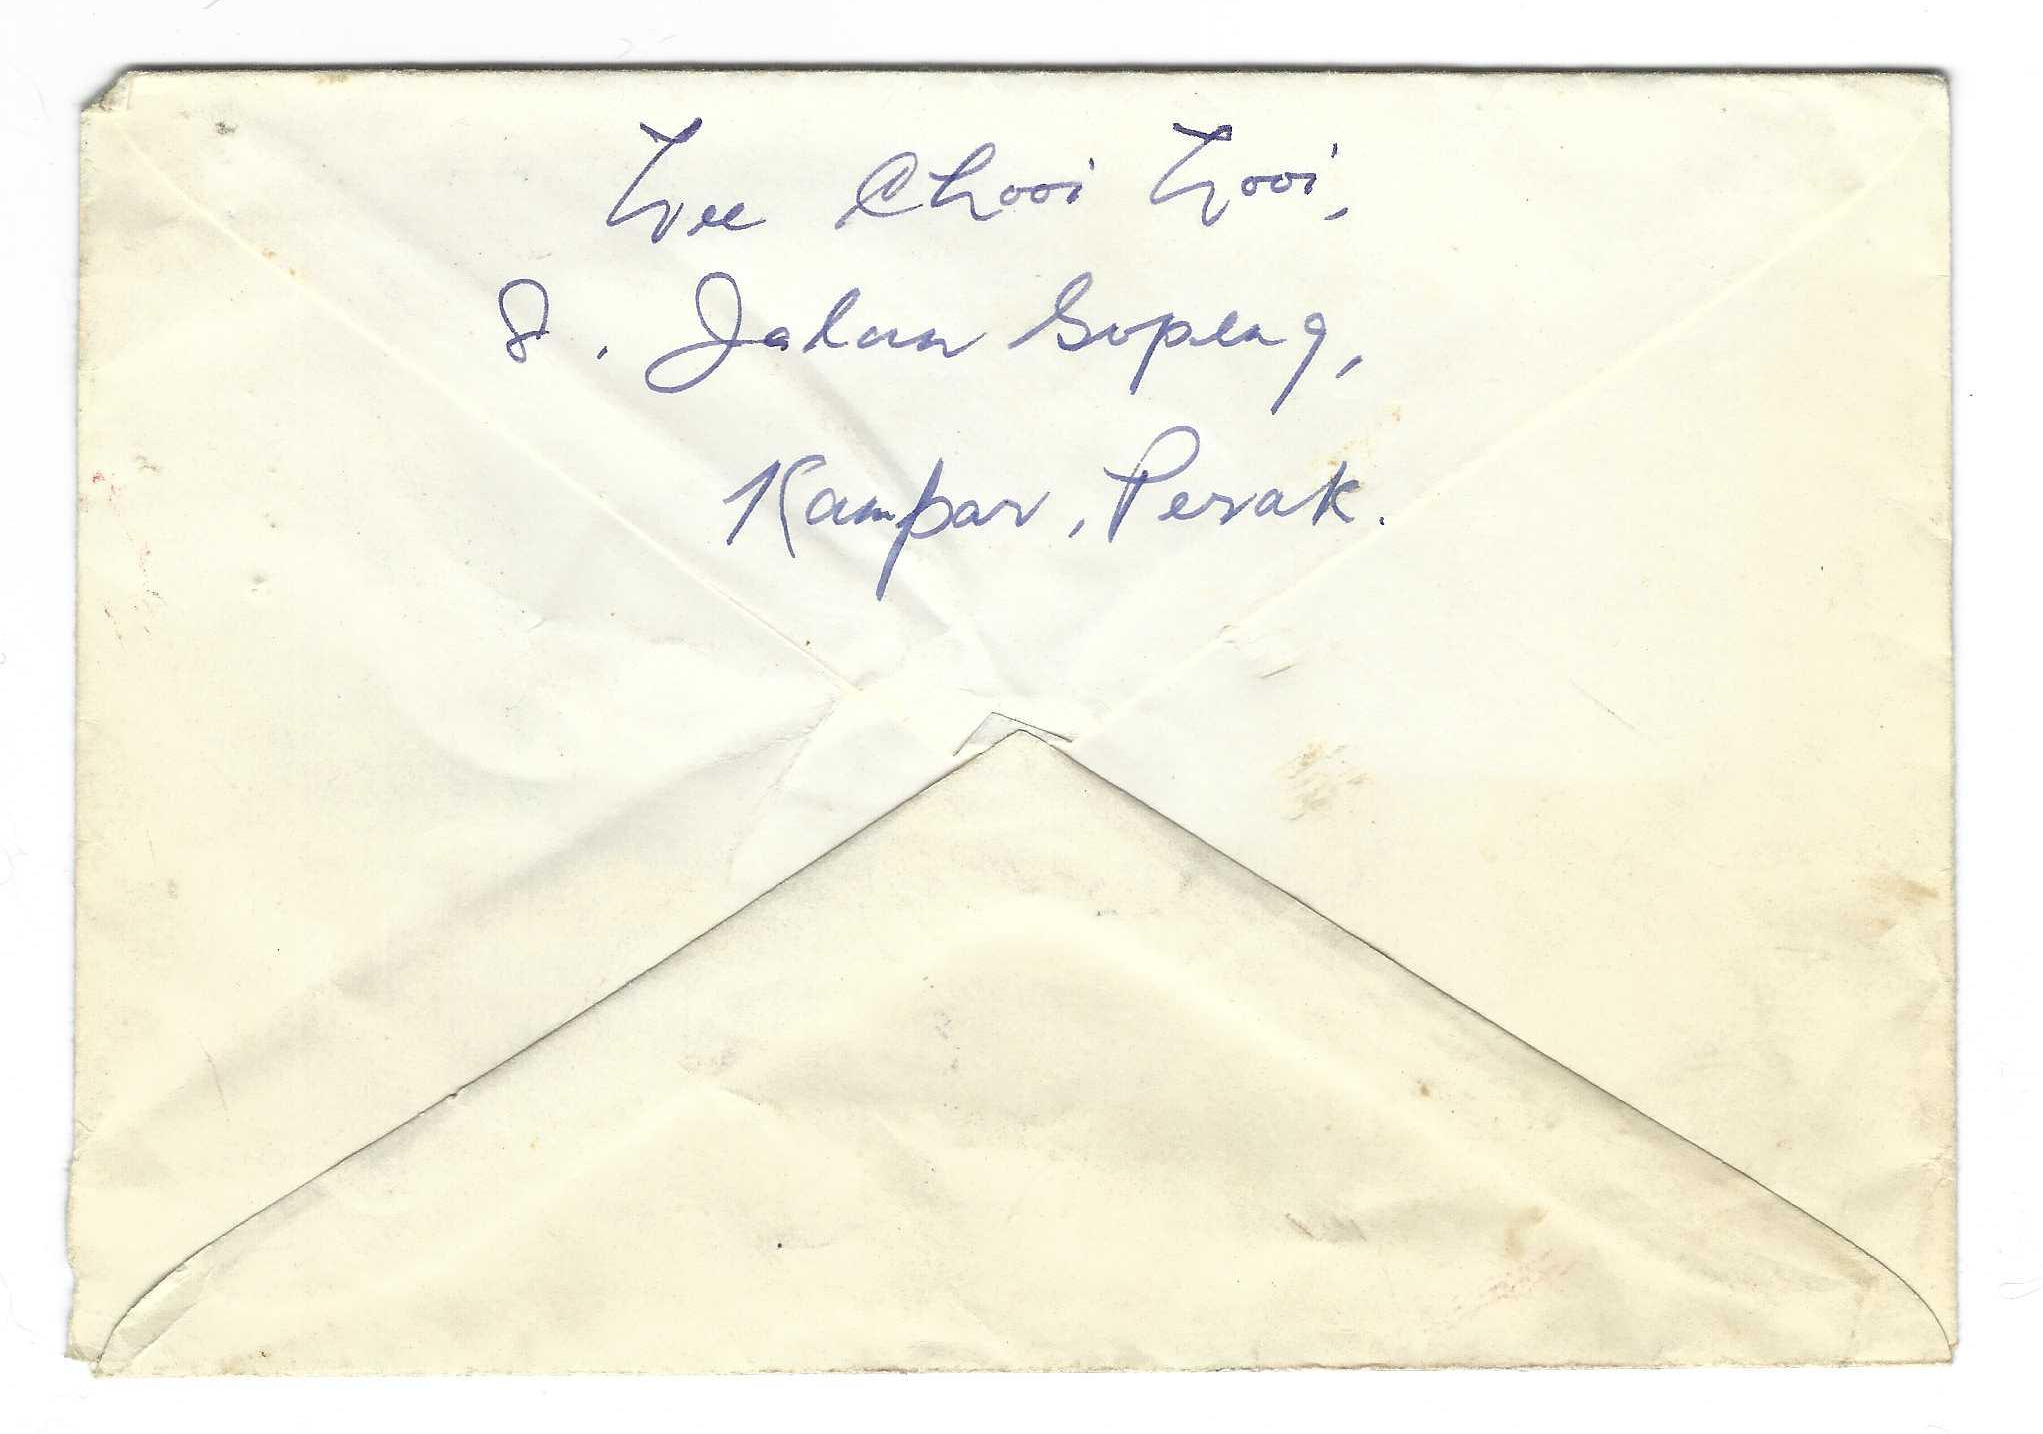 Lee Chooi Looi,
8. Jalan Gopeng,
Kampar, Perak.